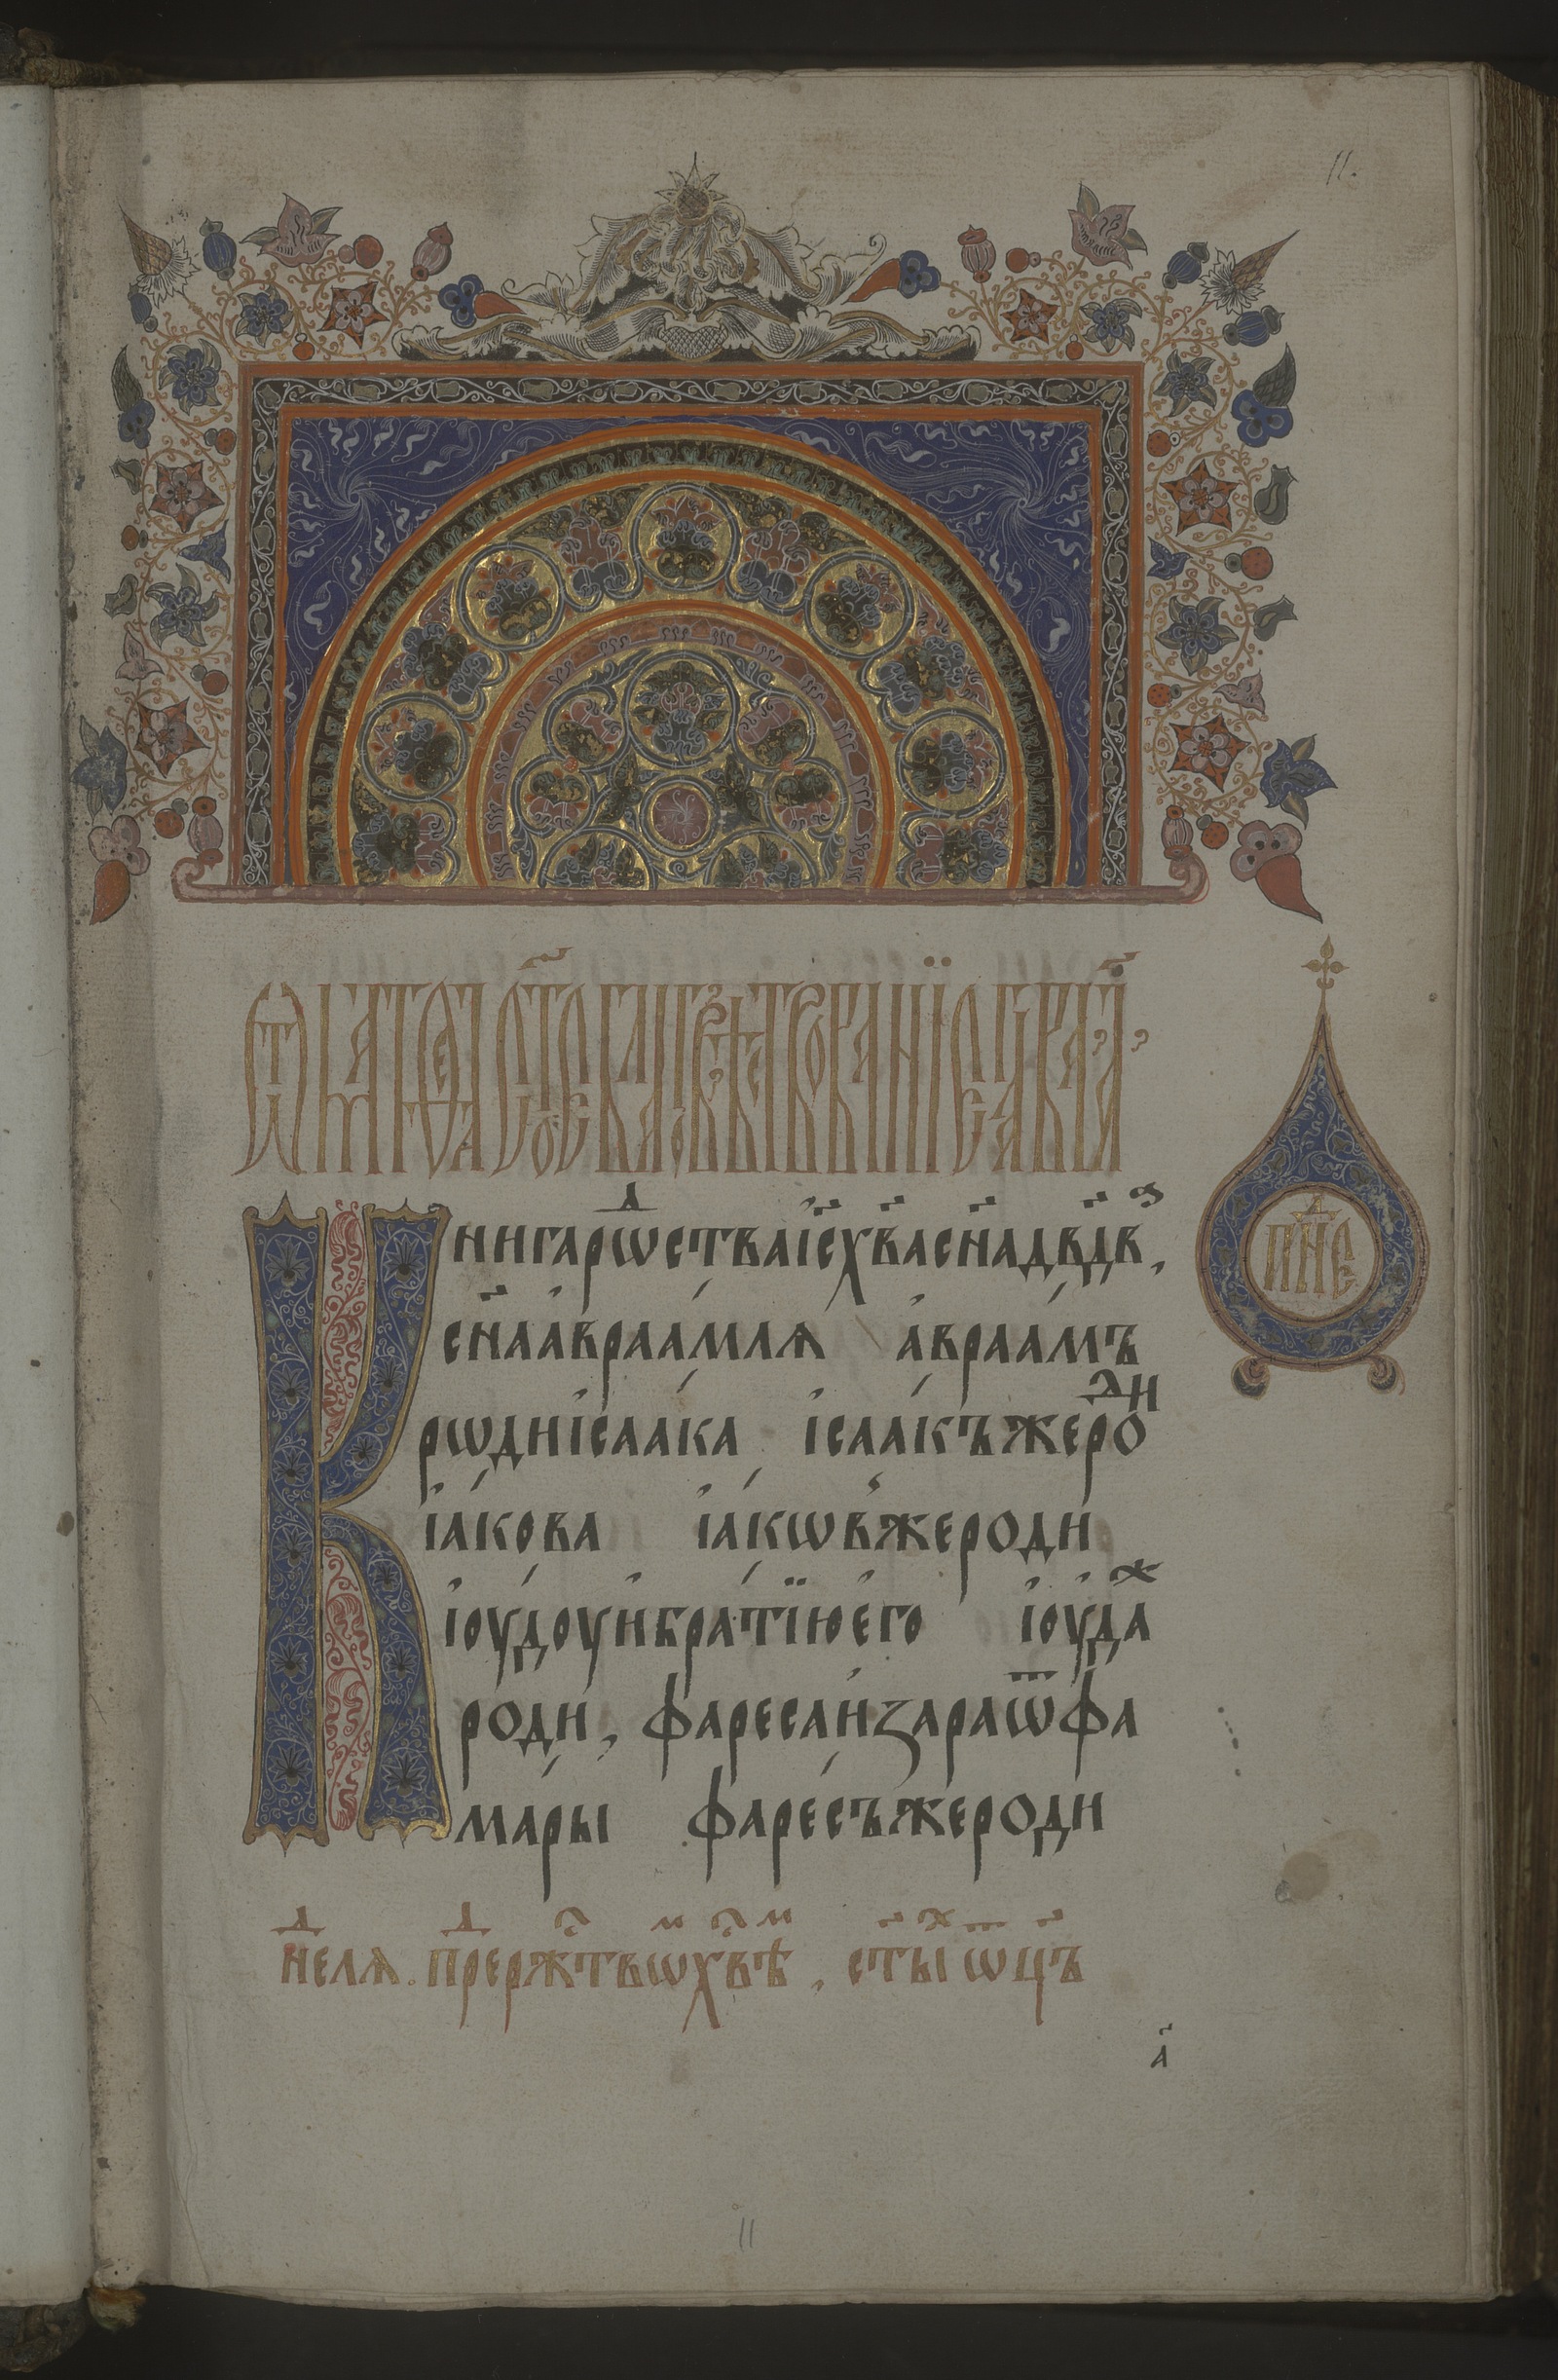 11.
ѿ матѳеꙗ ст҃ое бл҃говѣствованїе гл҃ва а҃
Книгарѡⷣстваі҆с҃хв҃асн҃адв҃дв,
сн҃аа҆враа́млѧ а҆враа́мъ
рѡдиі҆саа́ка і҆саа́къжероⷣи
і҆а́кова і҆а́кѡвжероди
і҆оу́доуи҆бра́тїюе҆го і҆оу́даⷤ
роди, фаресаи҆зараѿфа
ма́ры фаре́съжероди
зач҃
нⷣелѧ. преⷣржⷭтвѡⷨхвⷭѣⷨ, ст҃ыⷯ ѿц҃ъ
а҃
11